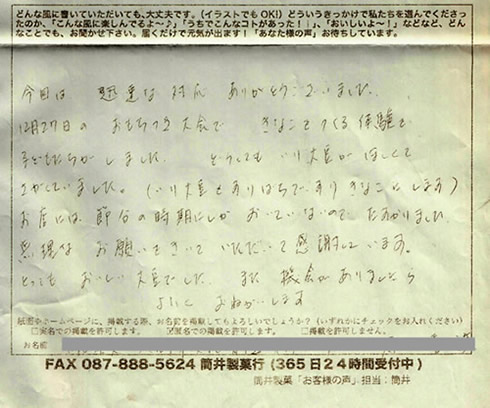 どんな風に書いていただいても、大丈夫です。(イラストでもOK!)どういうきっかけで私たちを選んでくださったのか、「こんな風に楽しんでるよ～♪」「うちでこんなコトがあった!」、「おいしいよ～!」などなど、どんなことでも、お聞かせ下さい。届くだけで元気が出ます!「あなた様の声」お待ちしています。
今日は 迅速な 対応 ありがとうございました。
12月27日の おもちつき大会で きなこをつくる体験を
子どもたちがしました。 どうしても いり大豆が ほしくて
さがしていました。(いり大豆を すりばちで すり きなこにします)
お店には 節分の時期にしか おいていないので たすかりました
無理な お願いをきいて いただいて 感謝しています。
とっても おいしい 大豆でした。 また 機会がありましたら
よろしく おねがいします
紙面やホームページに、掲載する際、お名前を掲載してもよろしいでしょうか?(いずれかにチェックをお入れください)
□実名での掲載を許可します。 □匿名での掲載を許可します。 □掲載を許可しません。
お名前
FAX 087-888-5624 筒井製菓行 (365日24時間受付中)
筒井製菓「お客様の声」担当:筒井